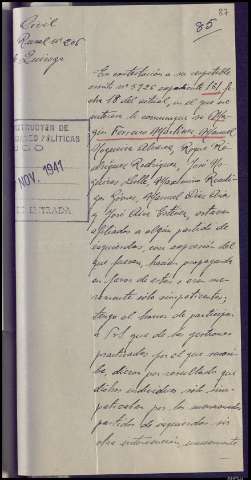 87
85
Civil
Rural nº 206
Quiroga
INSTRUCTOR DE
POLITICAS
NOV. 1941
ENTRADA
En contestación a su respetable
escrito nº 5726 expediente 181 fe-
cha 18 del actual, en el que me
interesa le comunique si Ma-
Ferreiro Martínez, Manuel
Nogueira Alvarez, Roque Ro-
dríguez Rodríguez, José No-
Maximino Rodrí-
guez Pérez, Manuel Díaz
y José Estévez, estaban
afiliados a algún partido de
izquierdas, con expresión del
que fuesen, hacían propaganda
en favor de estos, o eran me-
ramente solo simpatizantes;
tengo el honor de participar
a V.S. que de las gestiones
practicadas por el que suscri-
be, dieron por resultado que
dichos individuos solo sim-
patizaban por los mencionados
partidos de izquierdas sin
otra intervención, unicamente